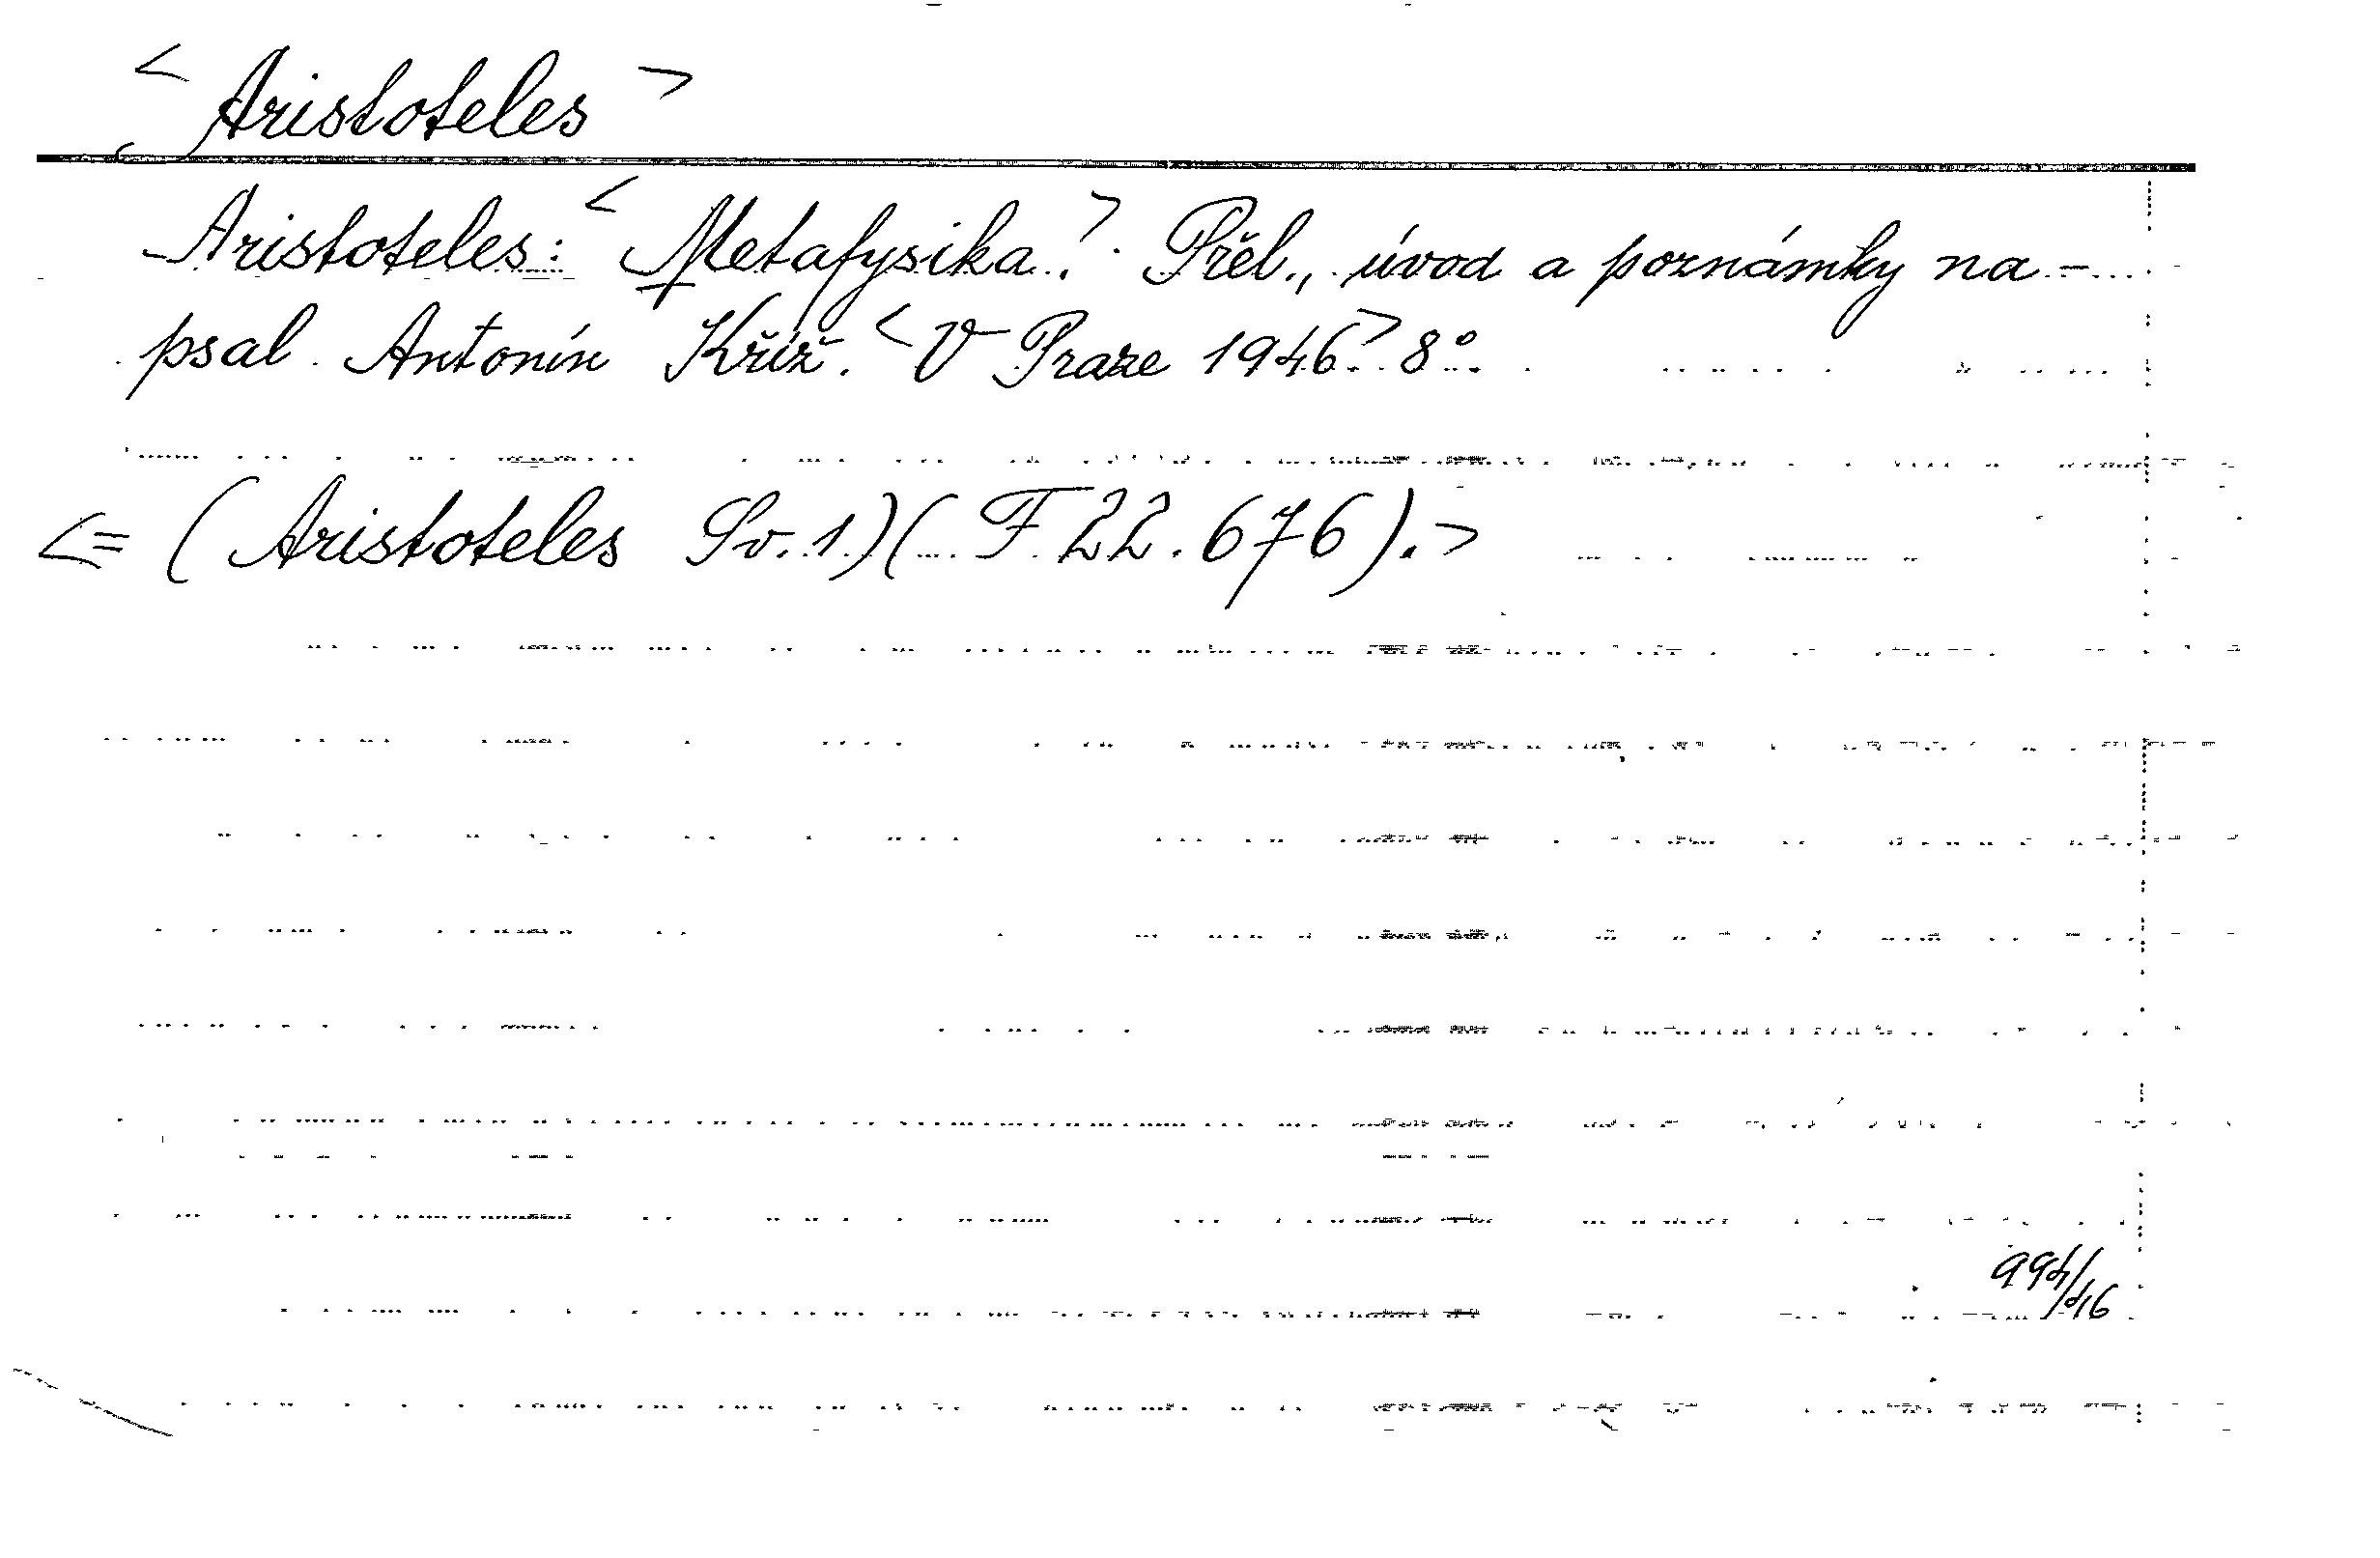 < Aristoteles >
Aristoteles: < Metafysika. > Přel., úvod a poznámky na-
psal Antonín Kříž. < V Praze 1946. > 8°.
<= (Aristoteles Sv. 1) (F 22.676). >